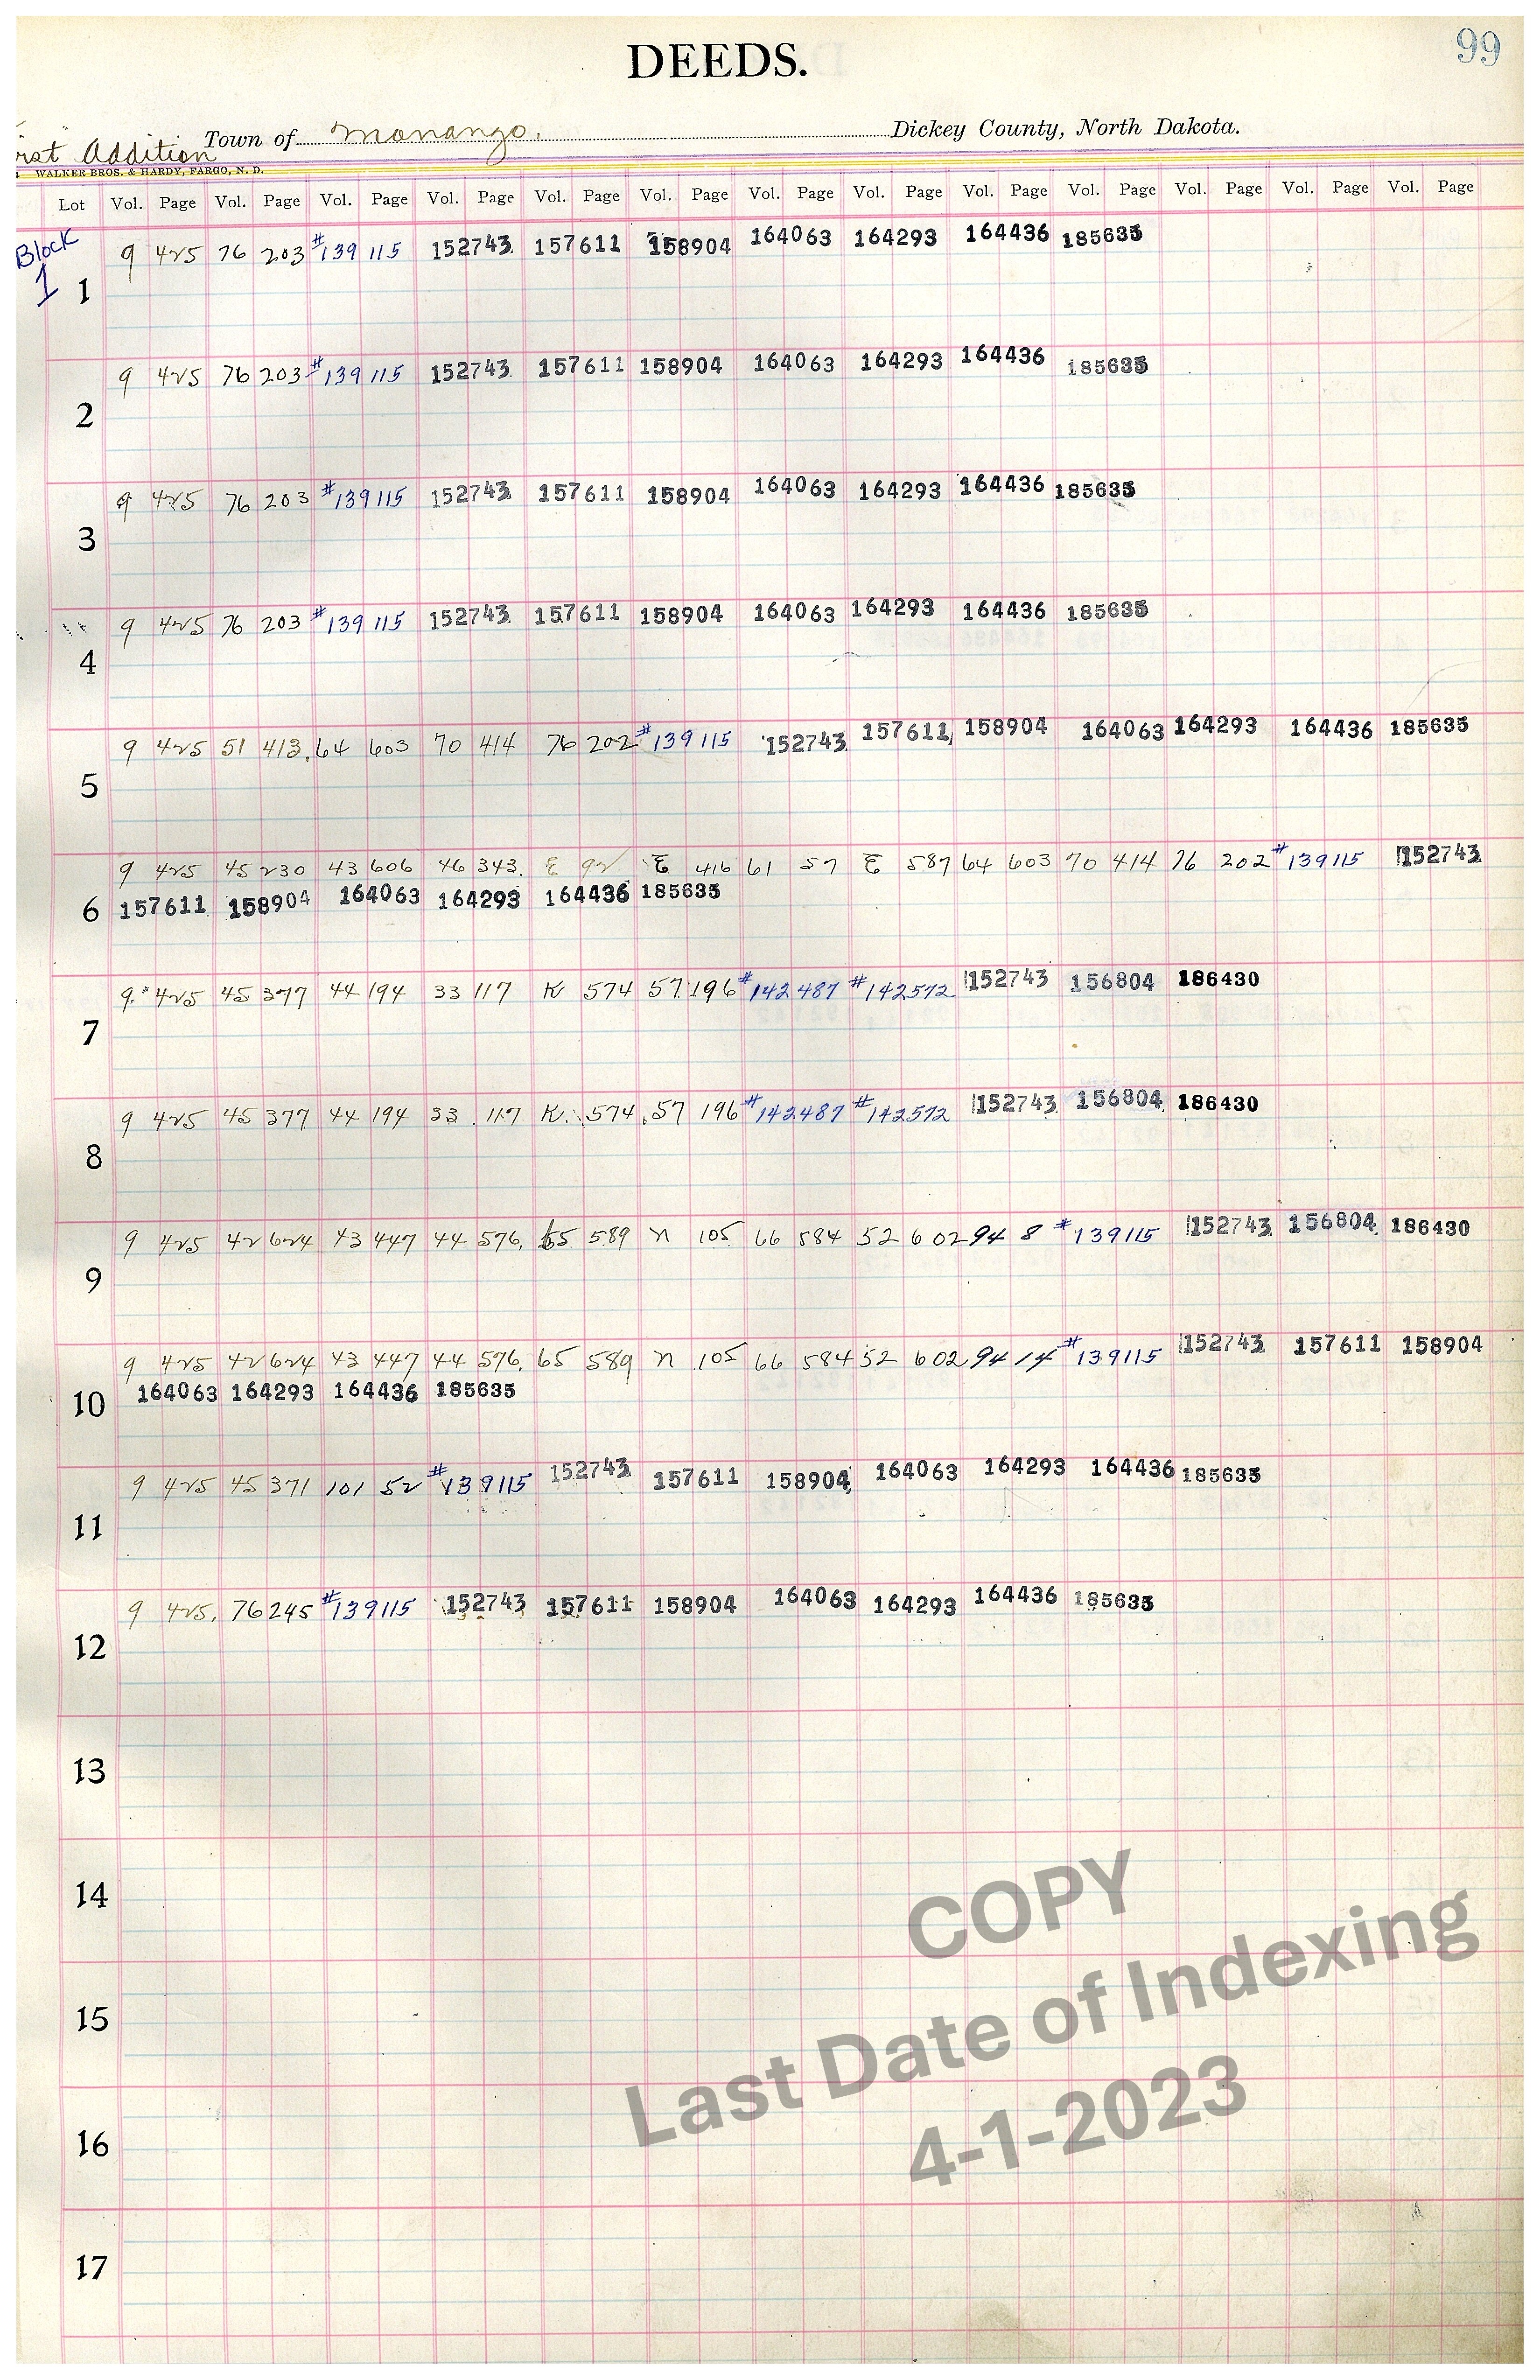 99
DEEDS.
Town of Monango. Dickey County, North Dakota.
Addition
WALKER BROS. & HARDY, FARGO, N. D.
Lot Vol. Page Vol. Page Vol. Page Vol. Page Vol. Page Vol. Page Vol. Page Vol. Page Vol. Page Vol. Page Vol. Page Vol. Page Vol. Page
Block
1
9 425 76 203 #139115 152743 157611 158904 164063 164293 164436 185635
1
9 425 76 203 #139115 152743 157611 158904 164063 164293 164436 185635
2
9 425 76 203 #139115 152743 157611 158904 164063 164293 164436 185635
3
9 425 76 203 #139115 152743 157611 158904 164063 164293 164436 185635
4
9 425 51 413 64 603 70 414 76 202 #139115 152743 157611 158904 164063 164293 164436 185635
5
9 425 45 230 43 606 46 343 E 92 E 416 61 57 E 587 64 603 70 414 76 202 #139115 152743
6 157611 158904 164063 164293 164436 185635
9 425 45 377 44 194 33 117 K 574 57 196 #142487 #142572 152743 156804 186430
7
9 425 45 377 44 194 33 117 K 574 57 196 #142487 #142572 152743 156804 186430
8
9 425 42 624 43 447 44 576 65 589 N 105 66 584 52 602 94 8 #139115 152743 156804 186430
9
9 425 42 624 43 447 44 576 65 589 N 105 66 584 52 602 94 14 #139115 152743 157611 158904
10 164063 164293 164436 185635
9 425 45 371 101 52 #139115 152743 157611 158904 164063 164293 164436 185635
11
9 425 76 245 #139115 152743 157611 158904 164063 164293 164436 185635
12
13
14
15
16
17
COPY
Last Date of Indexing
4-1-2023